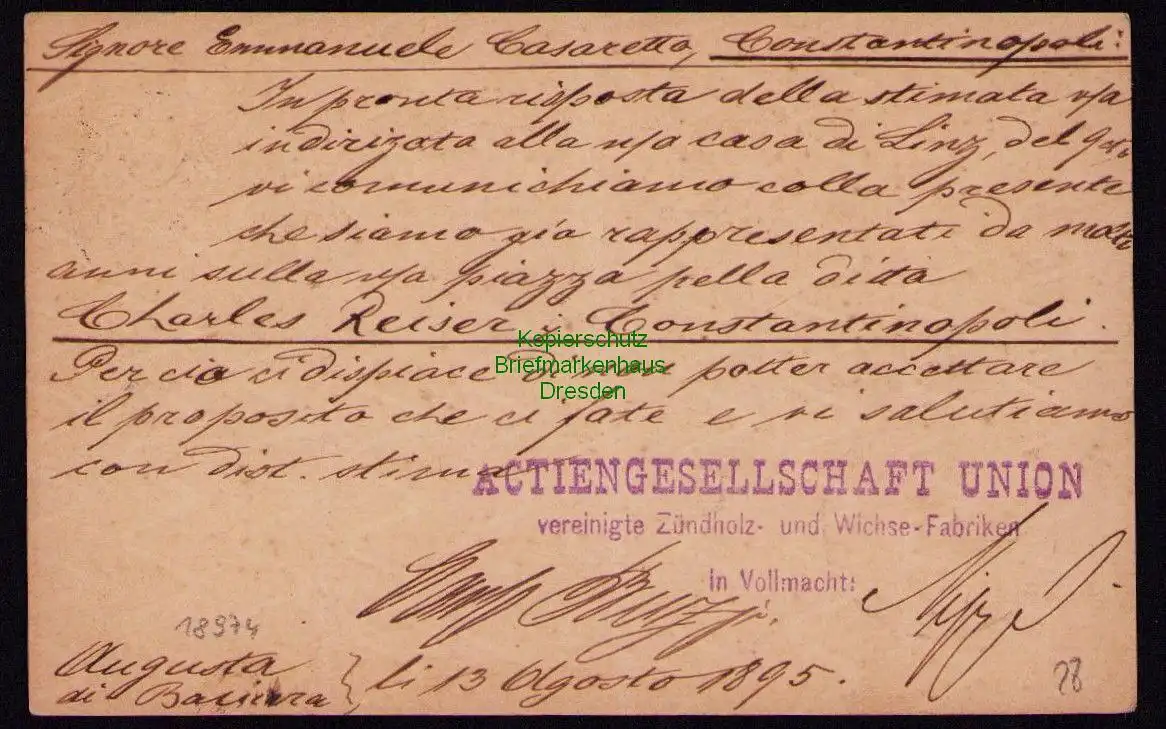 Signore Emmanuele Casaretto, Constantinopoli:
In pronta risposta della stimata v/a
indirizata alla n/a casa di Linz, del
vi comunichiamo colla presente
che siamo già rappresentati da molti
anni sulla v/a piazza pella ditta
Charles Reiser i Constantinopoli.
Perciò ci dispiace di non potter accettare
il proposito che ci fate e vi salutiamo
con dist. stima
Kopierschutz
Briefmarkenhaus
Dresden
ACTIENGESELLSCHAFT UNION
vereinigte Zündholz- und Wichse-Fabriken
in Vollmacht:
18974
Augusta
di Baviera } li 13 Agosto 1895.
28